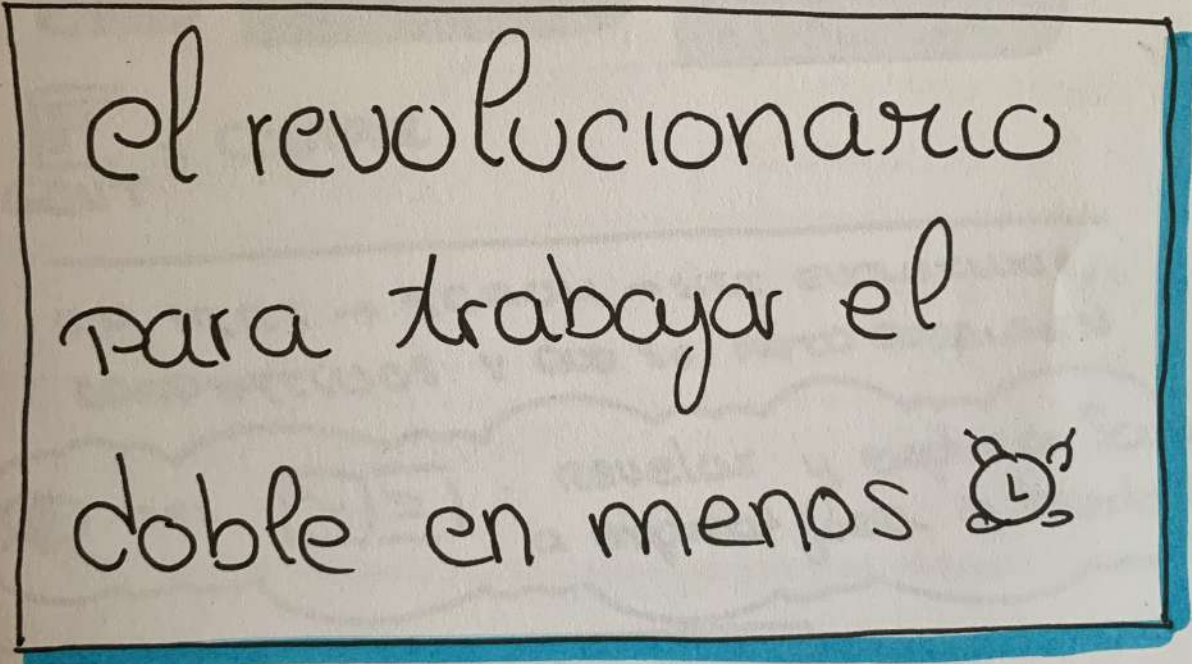 el revolucionario
para trabajar el
doble en menos ⏰